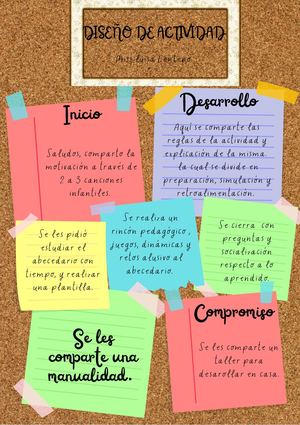 DISEÑO DE ACTIVIDAD
Miss Luisa Centeno
Inicio
Saludos, comparto la
motivación a través de
2 a 3 canciones
infantiles.
Desarrollo
Aquí se comparte las
reglas de la actividad y
explicación de la misma.
la cual se divide en
preparación, simulación y
retroalimentación.
Se les pidió
estudiar el
abecedario con
tiempo, y realizar
una plantilla.
Se realiza un
rincón pedagógico,
juegos, dinámicas y
retos alusivo al
abecedario.
Se cierra con
preguntas y
socialización
respecto a lo
aprendido.
Se les
comparte una
manualidad.
Compromiso
Se les comparte un
taller para
desarollar en casa.